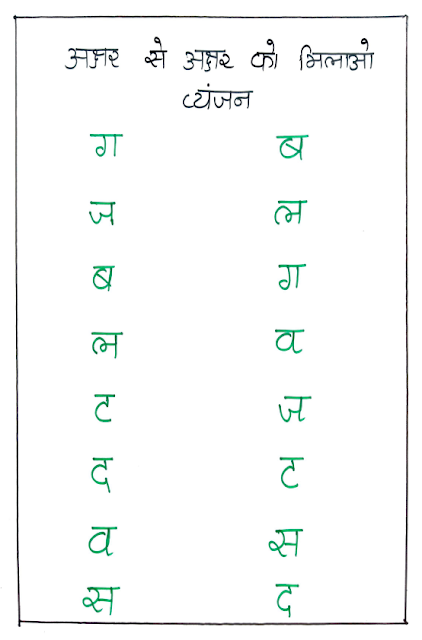 अक्षर से अक्षर को मिलाओ
व्यंजन
ग ब
ज ल
ब ग
ल व
ट ज
द ट
व स
स द